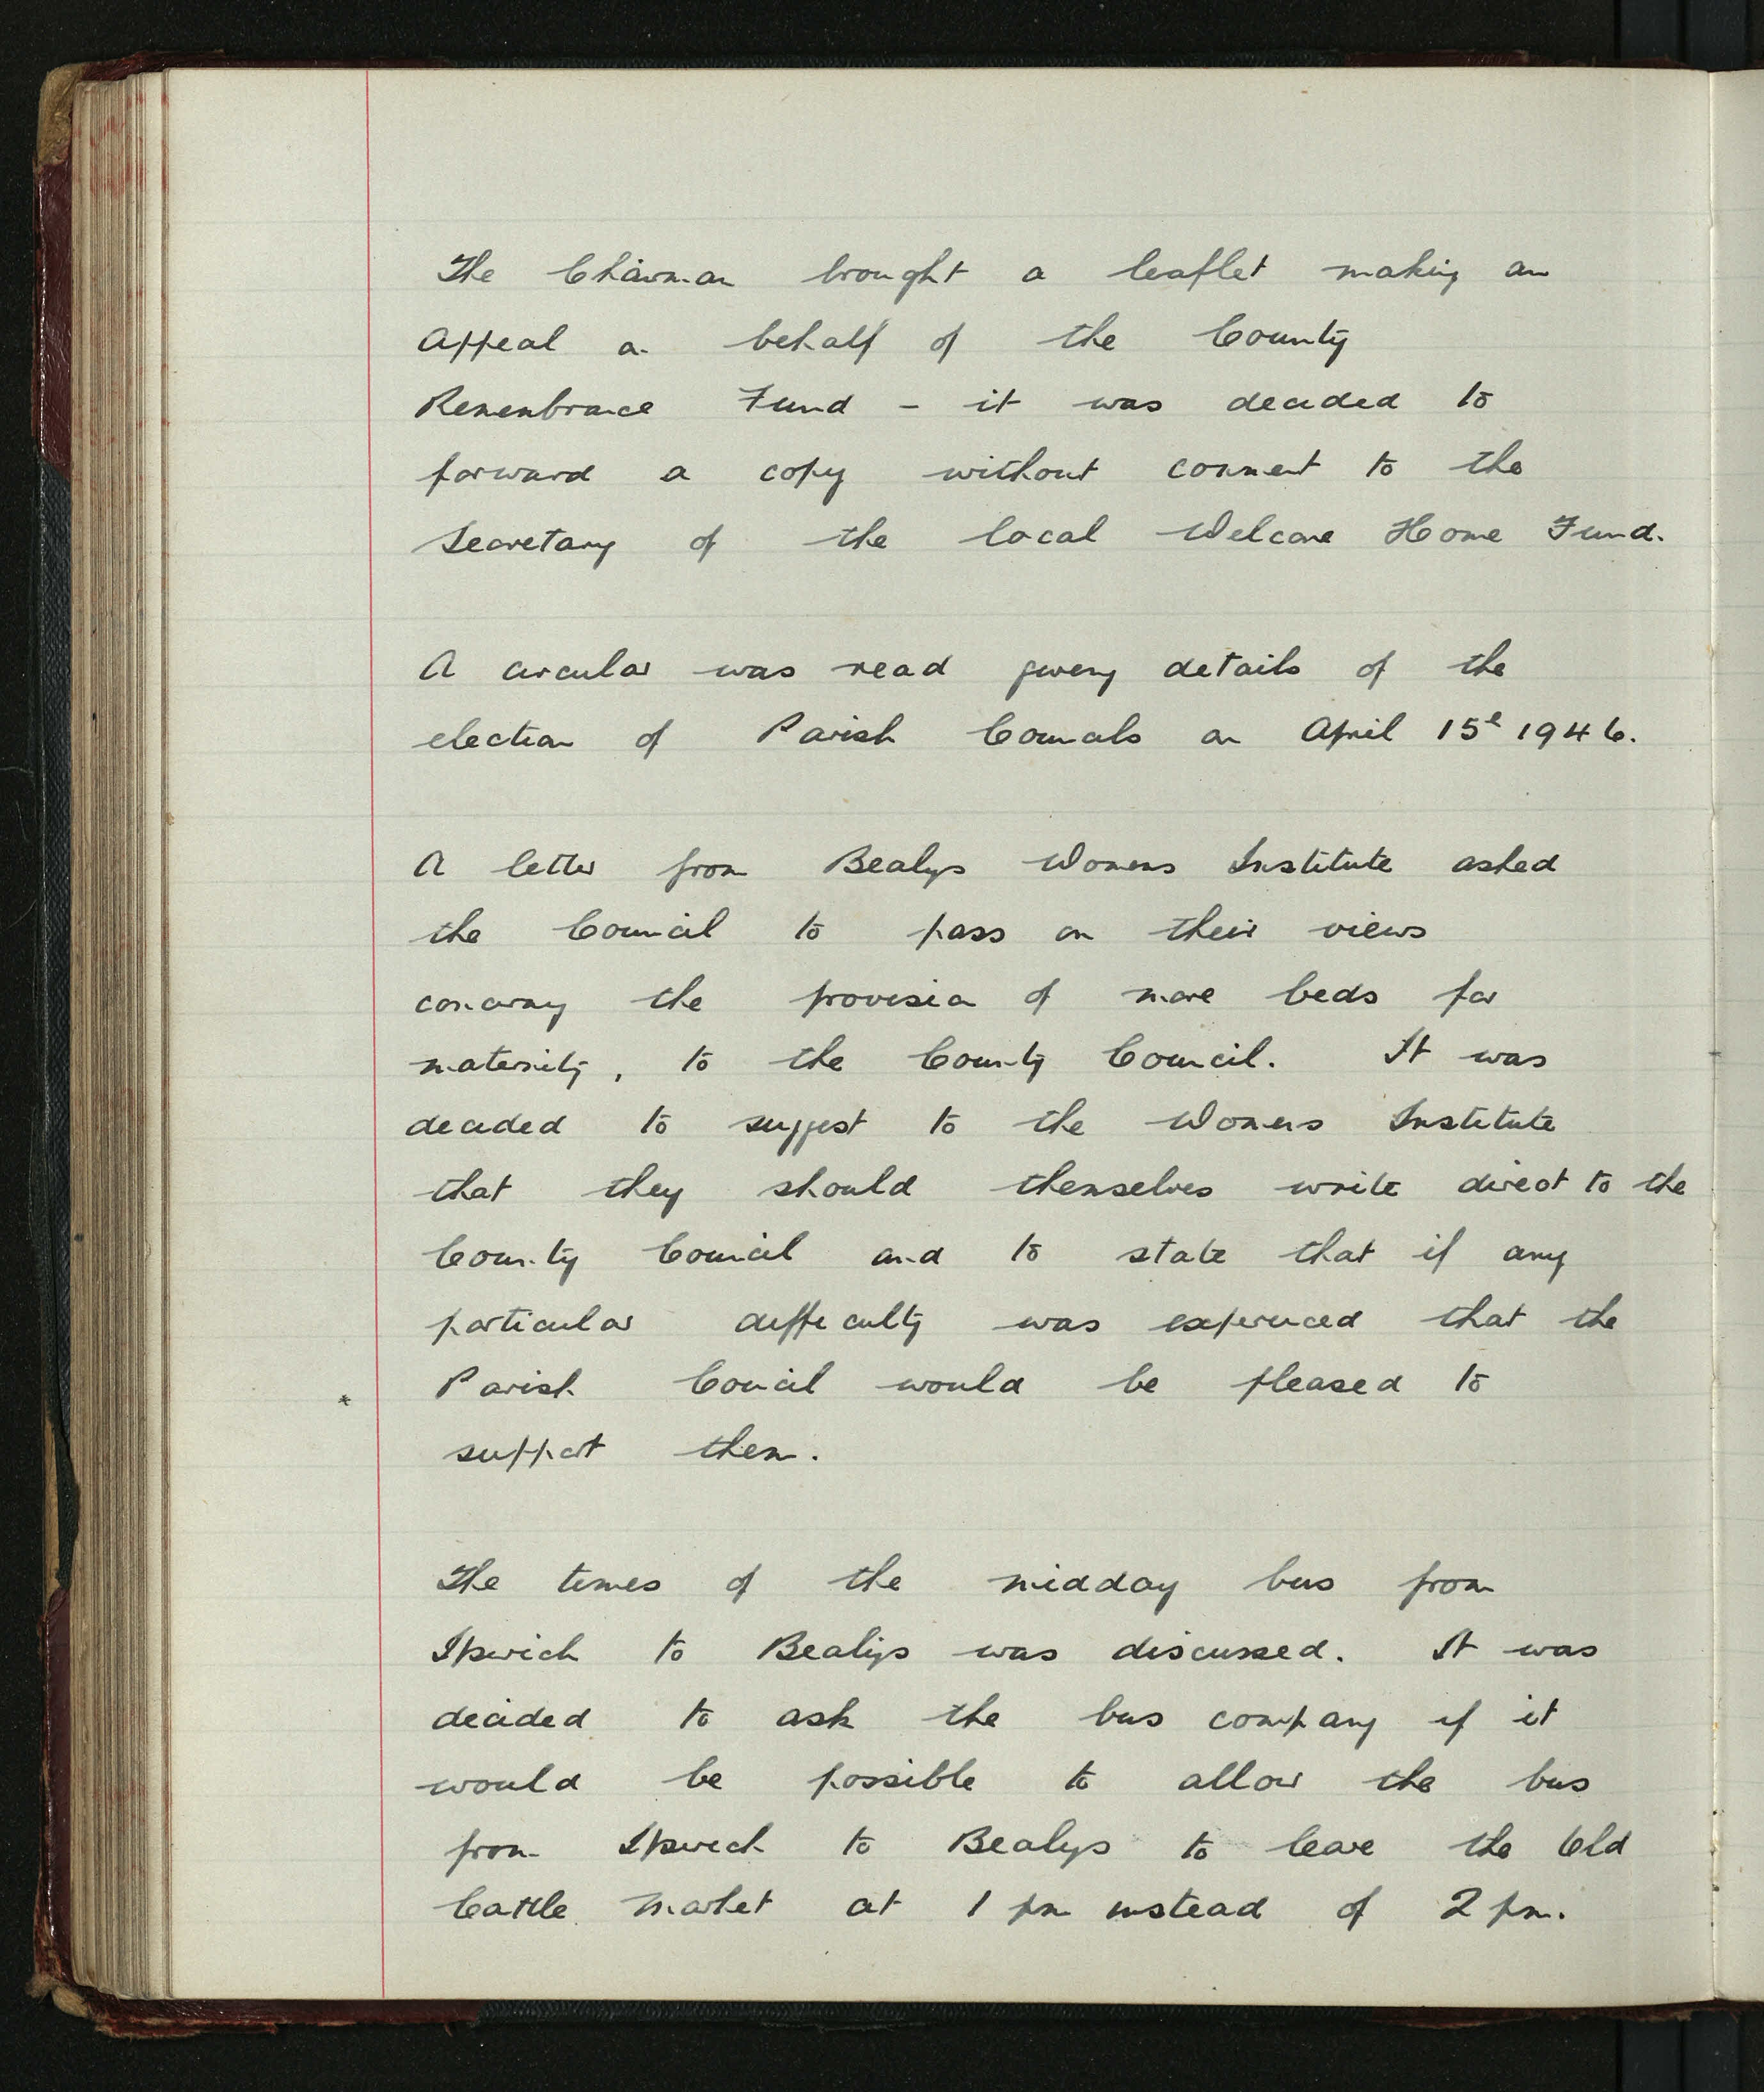 The Chairman brought a leaflet making an
Appeal on behalf of the County
Remembrance Fund - it was decided to
forward a copy without comment to the
Secretary of the local Welcome Home Fund.
A circular was read giving details of the
election of Parish Councils on April 15th 1946.
A letter from Bealings Womens Institute asked
the Council to pass on their views
concerning the provision of more beds for
maternity, to the County Council. It was
decided to suggest to the Womens Institute
that they should themselves write direct to the
County Council and to state that if any
particular difficulty was experienced that the
Parish Council would be pleased to
support them.
The times of the midday bus from
Ipswich to Bealings was discussed. It was
decided to ask the bus company if it
would be possible to allow the bus
from Ipswich to Bealings to leave the Old
Cattle Market at 1 pm instead of 2 pm.